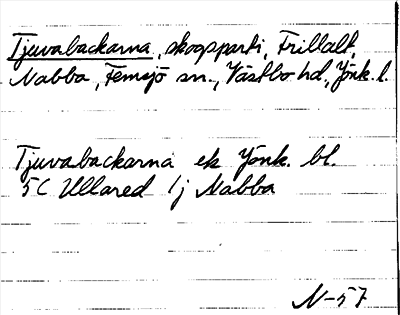 Tjuvabackarna, skogsparti, Frillalt,
Nabba, Femsjö sn., Västbo hd, Jönk. l.
Tjuvabackarna ek Jönk. bl.
5C Ullared 1j Nabba
N-57